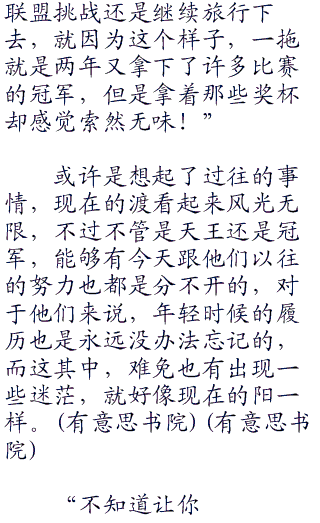 联盟挑战还是继续旅行下
去，就因为这个样子，一拖
就是两年又拿下了许多比赛
的冠军，但是拿着那些奖杯
却感觉索然无味！”
或许是想起了过往的事
情，现在的渡看起来风光无
限，不过不管是天王还是冠
军，能够有今天跟他们以往
的努力也都是分不开的，对
于他们来说，年轻时候的履
历也是永远没办法忘记的，
而这其中，难免也有出现一
些迷茫，就好像现在的阳一
样。(有意思书院)(有意思书
院)
“不知道让你